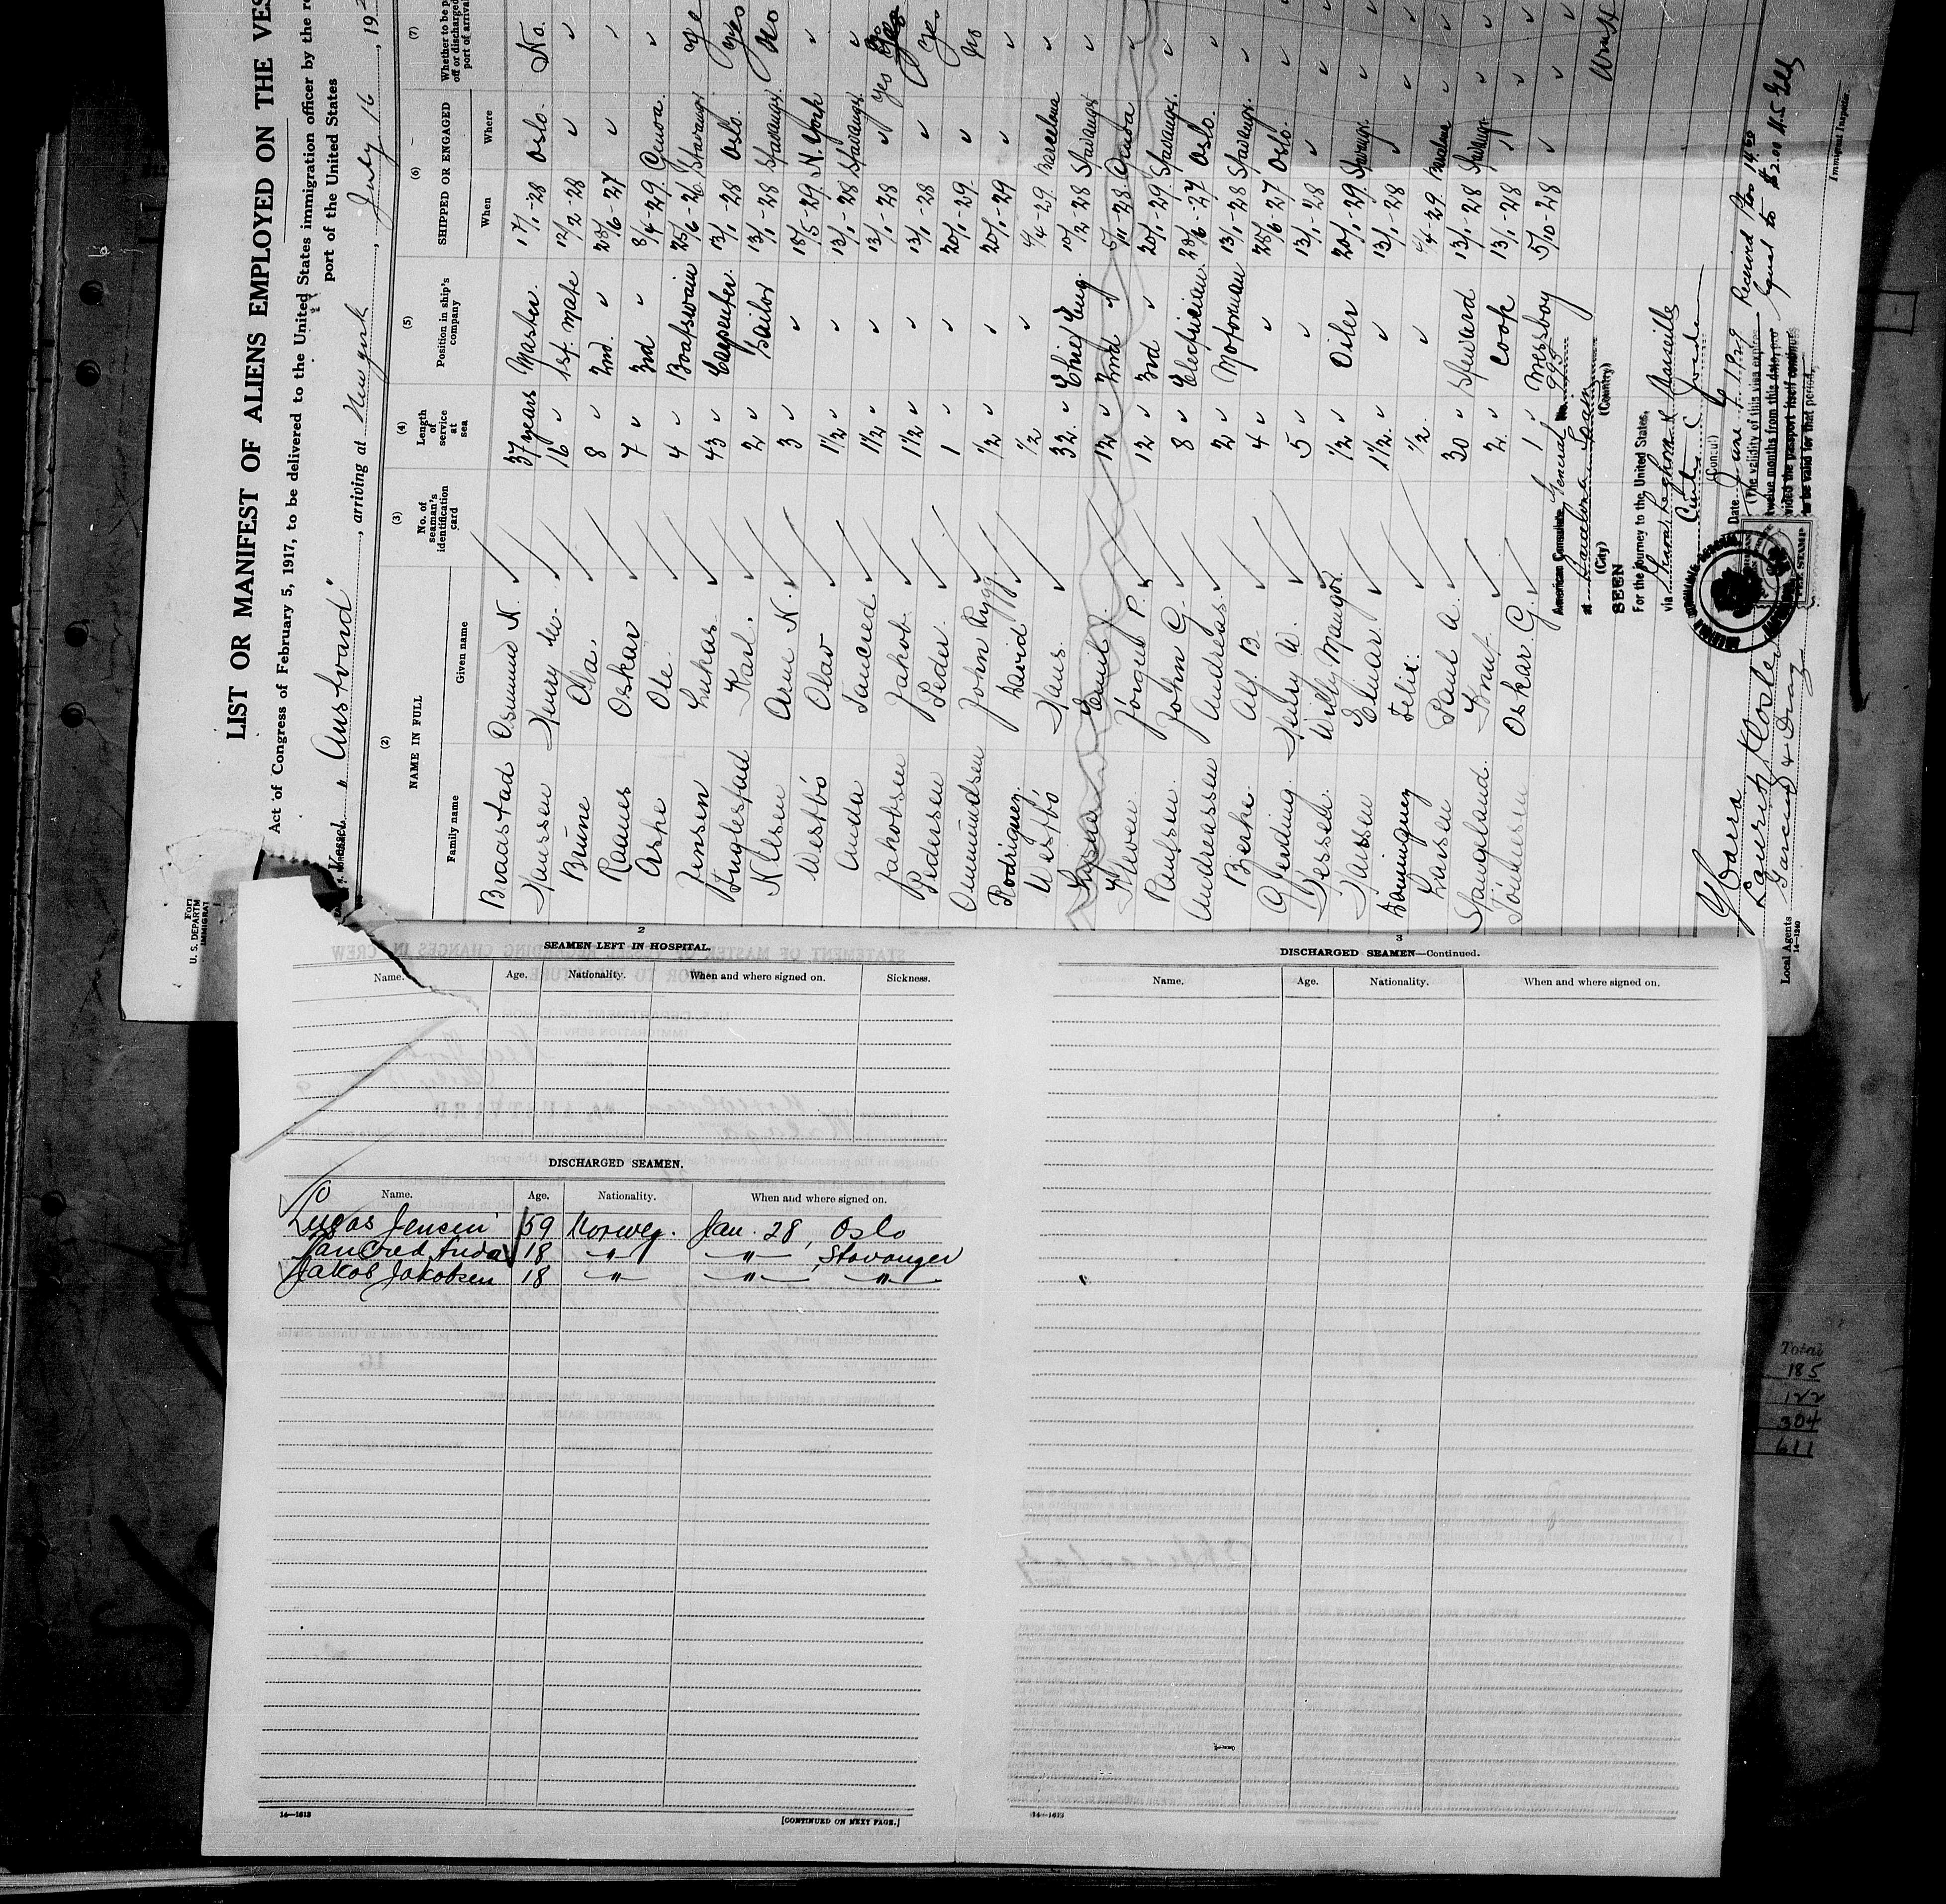 LIST OR MANIFEST OF ALIENS EMPLOYED ON THE VES
Act of Congress of February 5, 1917, to be delivered to the United States immigration officer by the re
port of the United States
Vessel " Austvard" , arriving at New York , July 16 , 192
(2) (3) (4) (5) (6) (7)
NAME IN FULL
Family name Given name
No. of seaman's identification card
Length of service at sea
Position in ship's company
SHIPPED OR ENGAGED
When Where
Whether to be p
off or discharged
port of arrival
Braastad Asmund N. 37 years Master. 17/1-28 Oslo. No.
Hanssen Henry M. 16 " 1st. mate 12/2-28 " "
Brune Ola. 8 " 2nd. " 28/6-27 " "
Raanes Oskar 7 " 3rd " 8/4-29 Genoa. "
Aske Ole. 4 " Boatswain 25/6-26 Stavanger
Jensen Lukas. 43 " Carpenter. 13/1-28 Oslo. Yes
Karl. 2 " Sailor 13/1-28 Stavanger. No
Nilsen Arne N. 3 " " 18/5-29 N. York "
Westbö Olav 1 1/2 " " 13/1-28 Stavanger. "
Anda Tancred 1 1/2 " " 13/1-28 " Yes
Jakobsen Jakob. 1 1/2 " " 13/1-28 " Yes
Pedersen Peder. 1 " " 20/1-29. " No
Ommundsen John Rygg. 1/2 " " 20/1-29 " "
Rodriguez. David 1/2 " 4/4-29. Barcelona "
Westbö Hans 32. " Chief Eng. 10/2-28 Stavanger "
Emil J. 12 " 2nd " 5/11-28 Genoa
Kleven P. 12 " 3rd " 20/1-29. Stavanger. "
Paulsen. John G. 8 " Electrician. 28/6-27 Oslo. "
Andreassen Andreas. 2 " Motorman 13/1-28 Stavanger. "
Berke. Alf B. 4 " " 28/6-27 Oslo. "
Gjerding. W. 5 " " 13/1-28 " "
Wessel. Willy 1/2 " Oiler 20/1-29. Stavanger. "
Hanssen Einar. 1 1/2. " " 13/1-28 " "
Dominguez Felix. 1/2. " 4/4-29 "
Larsen Paul A. 30 " Steward 13/1-28 Stavanger. "
Spangeland. Knut. 2. " Cook 13/1-28 " "
Tönnesen Oskar G. 1 " Messboy 5/10-28 " "
American Consulate General No. 995
at Barcelona Spain
(City) (Country)
SEEN
For the journey to the United States,
via Leghorn & Marseille
Curtis C.
(Consul)
Date June 4 1929
(The validity of this visa expires
twelve months from this date, provided the passport itself continues
to be valid for that period.
Received Ptas 14.00
equal to $2.00 U.S. Gold
FEE STAMP
Ybarra
Local Agents Garcia & Diaz
14—1240
Immigrant Inspector.
U. S. DEPARTM
IMMIGRAT
2
SEAMEN LEFT IN HOSPITAL.
Name. Age. Nationality. When and where signed on. Sickness.
DISCHARGED SEAMEN.
Name. Age. Nationality. When and where signed on.
Lugas Jensen 59 Norweg. Jan. 28, Oslo
Tancred Anda 18 " " , Stavanger
Jakob Jakobsen 18 " " "
14—1613
[CONTINUED ON NEXT PAGE.]
3
DISCHARGED SEAMEN—Continued.
Name. Age. Nationality. When and where signed on.
14—1613
Total
185
122
304
611